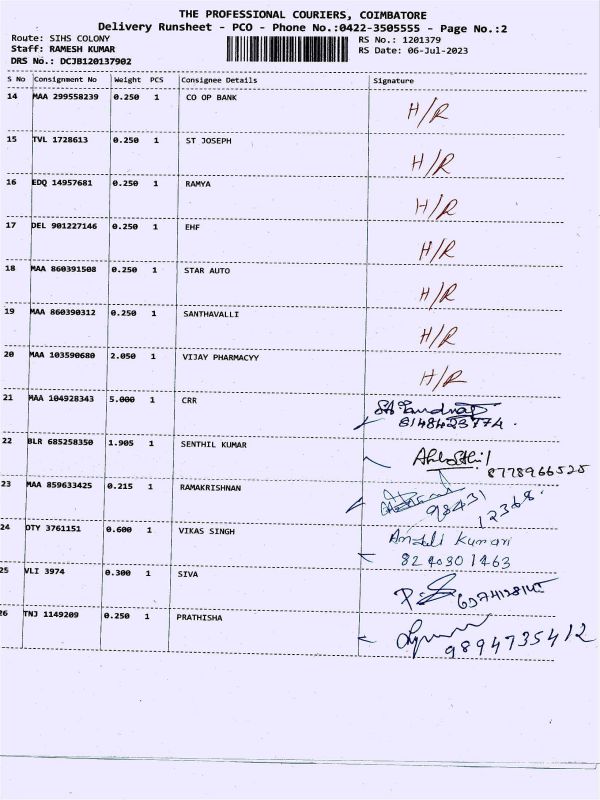 THE PROFESSIONAL COURIERS, COIMBATORE
Delivery Runsheet - PCO - Phone No.:0422-3505555 - Page No.:2
Route: SIHS COLONY RS No.: 1201379
Staff: RAMESH KUMAR RS Date: 06-Jul-2023
DRS No.: DCJB120137902
S No Consignment No Weight PCS Consignee Details Signature
14 MAA 299558239 0.250 1 CO OP BANK H/R
15 TVL 1728613 0.250 1 ST JOSEPH H/R
16 EDQ 14957681 0.250 1 RAMYA H/R
17 DEL 901227146 0.250 1 EHF H/R
18 MAA 860391508 0.250 1 STAR AUTO H/R
19 MAA 860390312 0.250 1 SANTHAVALLI H/R
20 MAA 103590680 2.050 1 VIJAY PHARMACYY H/R
21 MAA 104928343 5.000 1 CRR
8148423774.
22 BLR 685258350 1.905 1 SENTHIL KUMAR
8778966525
23 MAA 859633425 0.215 1 RAMAKRISHNAN
98431
12368.
24 DTY 3761151 0.600 1 VIKAS SINGH Anjali Kumari
8240301463
25 VLI 3974 0.300 1 SIVA
26 TNJ 1149209 0.250 1 PRATHISHA
9894735412